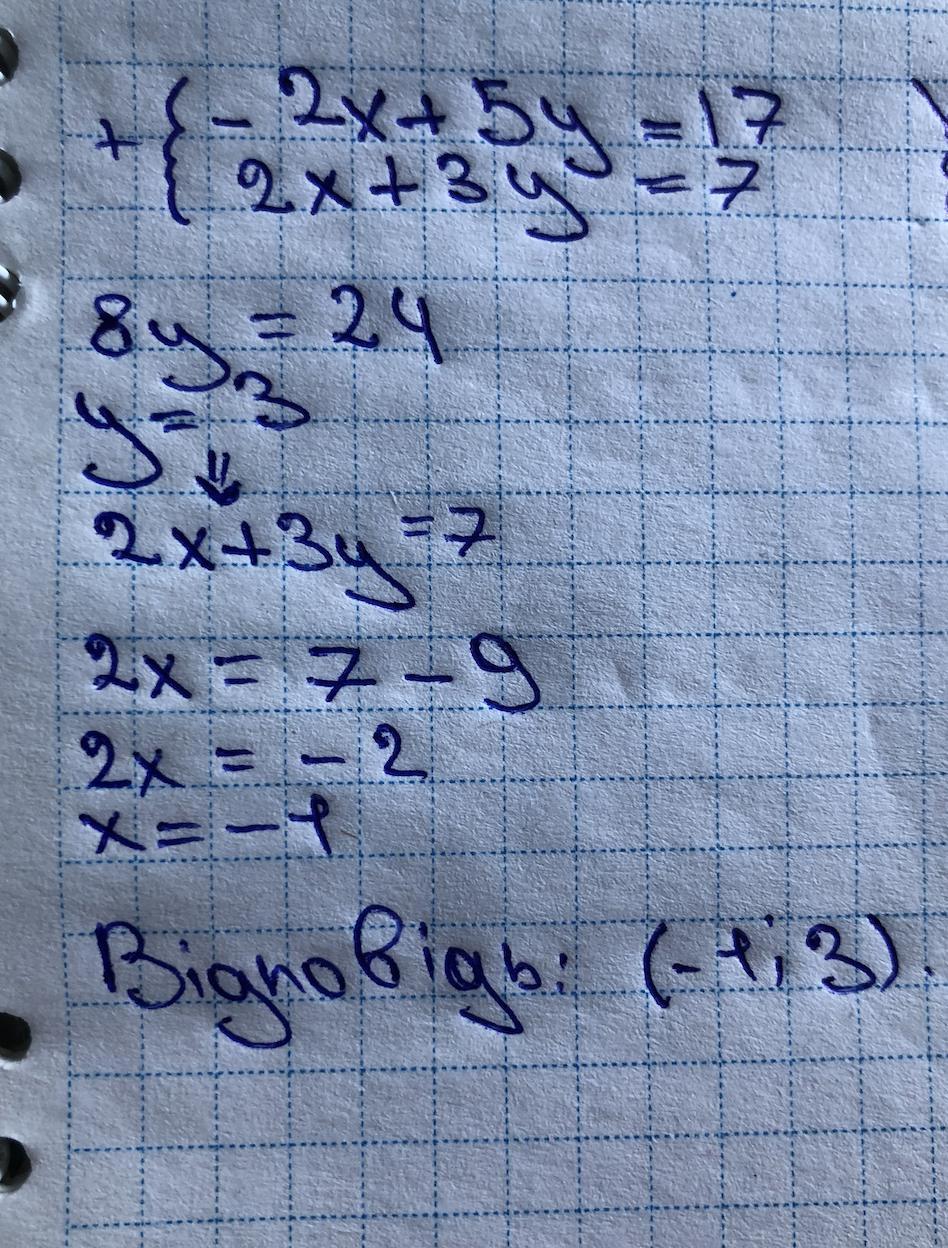 + { - 2x + 5y = 17
2x + 3y = 7
8y = 24
y = 3
⇓
2x + 3y = 7
2x = 7 - 9
2x = - 2
x = - 1
Відповідь: (-1; 3).